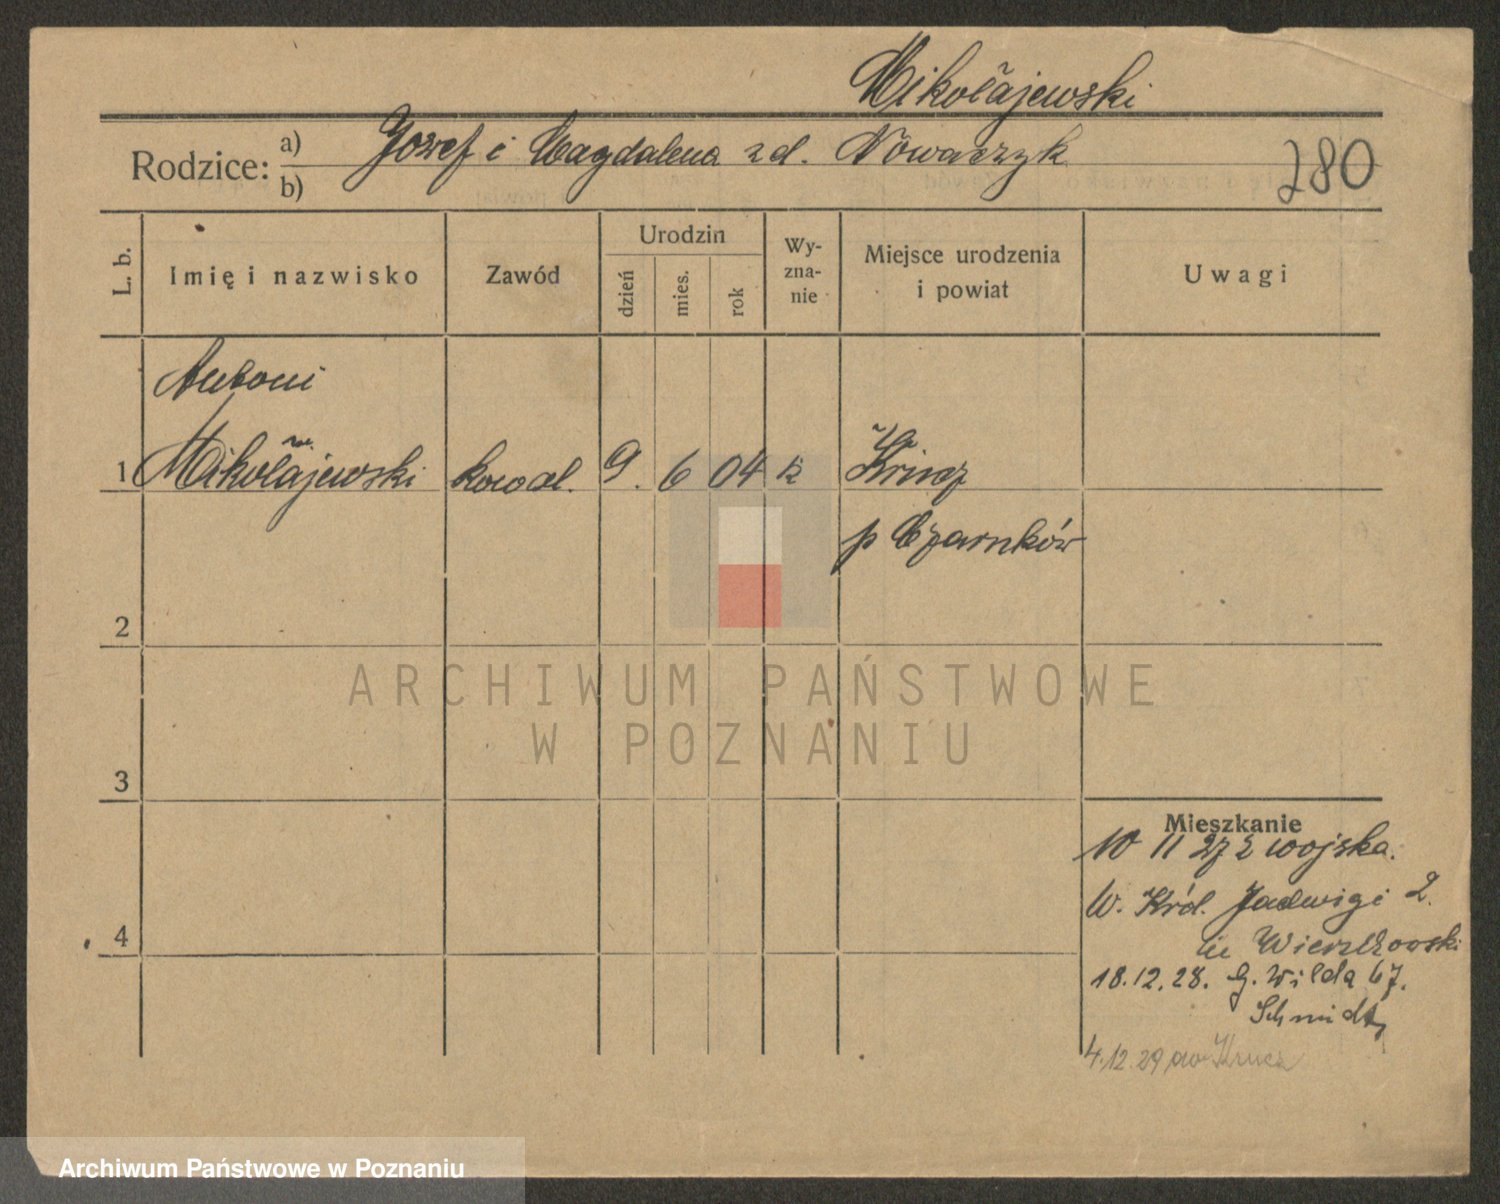 Mikołajewski
Rodzice: a) Józef i Magdalena zd. Nowaczyk
b)
280
L. b.
Imię i nazwisko
Zawód
Urodzin
dzień
mies.
rok
Wy-
zna-
nie
Miejsce urodzenia
i powiat
Uwagi
Antoni
1 Mikołajewski kowal. 9. 6 04 k Krucz
p Czarnków
2
ARCHIWUM PAŃSTWOWE
W POZNANIU
3
Mieszkanie
10 11 27 z wojska.
W. Król. Jadwigi 2.
4
Wierzkowski
18.12.28. G. Wilda 67.
Schmidt
4.12.29 do Krucz
Archiwum Państwowe w Poznaniu